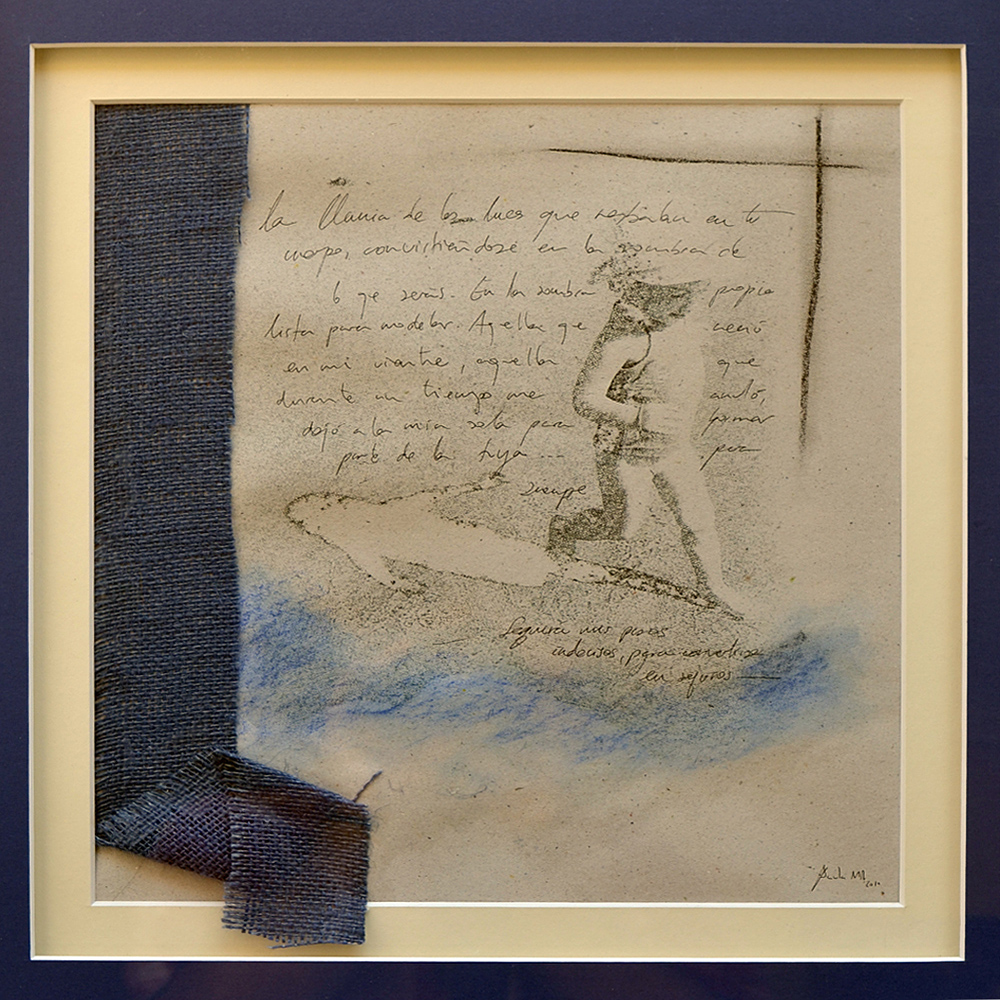 la lluvia de los lues que en tu
cuerpo, convirtiendose en la sombra de
lo que serás. En la sombra propia
lista para modelar. Aquella que nació
en mi vientre, aquella que
durante un tiempo me anuló,
dejó a la mía sola para formar
parte de la tuya ... por
siempre
Seguirá mis pasos
indecisos, para convertirse
en seguros